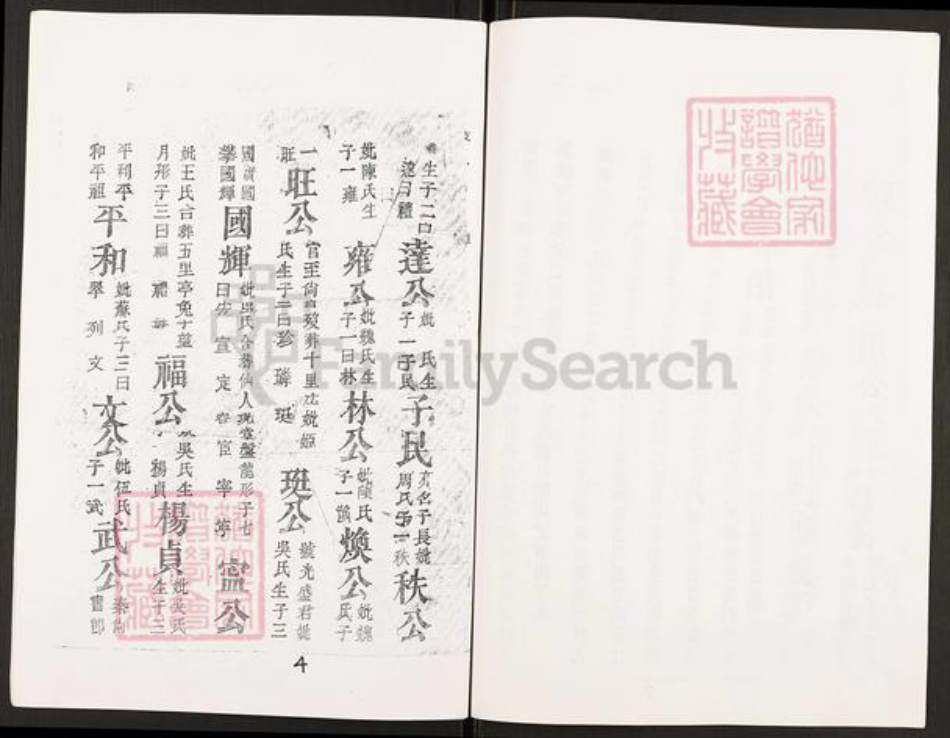 生子二曰
達曰禮
達公
妣 氏生
子一子民
子民
名子長妣
周氏子一秩
秩公
妣陳氏生
子一雍
雍公
妣魏氏生
子一曰林
林公
妣陳氏
子一
煥公
妣魏
氏子
一
旺
旺公
官至尚 葬十里 妣姬
氏生子三曰珍 璘 珽
珽公
號光盛君妣
吳氏生子三
國 國
攀國輝
國輝
妣吳氏合葬仙人 盤龍形子七
曰安 宣 定 容 官 寧
公
妣王氏合葬五里亭兔子望
月形子三曰福 禮
福公
吳氏生
楊貞
楊貞
妣吳氏
生子三
平利平
和平祖
平和
妣蘇氏子三曰
舉 列 文
文公
妣伍氏
子一武
武公
4
猶他家
譜學會
收藏
FamilySearch